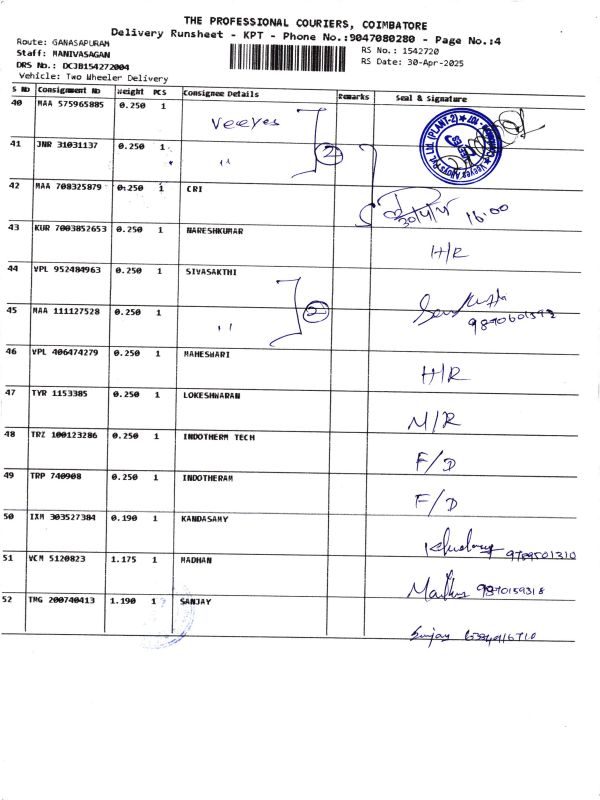 THE PROFESSIONAL COURIERS, COIMBATORE
Delivery Runsheet - KPT - Phone No.:9047080280 - Page No.:4
Route: GANASAPURAM
Staff: MANIVASAGAN
DRS No.: DCJB154272004
Vehicle: Two Wheeler Delivery
RS No.: 1542720
RS Date: 30-Apr-2025
S No Consignment No Weight PCS Consignee Details Remarks Seal & Signature
40 MAA 575965885 0.250 1 Veeyes
41 JNR 31031137 0.250 1 " 2
42 MAA 708325879 0.250 1 CRI 30/4/25 16:00
43 KUR 7003852653 0.250 1 NARESHKUMAR H/R
44 VPL 952484963 0.250 1 SIVASAKTHI
45 MAA 111127528 0.250 1 " 2
46 VPL 406474279 0.250 1 MAHESWARI H/R
47 TYR 1153385 0.250 1 LOKESHWARAN M/R
48 TRZ 100123286 0.250 1 INDOTHERM TECH F/D
49 TRP 740908 0.250 1 INDOTHERAM F/D
50 IXM 303527384 0.190 1 KANDASAMY 9789501310
51 VCM 5120823 1.175 1 MADHAN 9870159318
52 TMG 200740413 1.190 1 SANJAY Sanjay